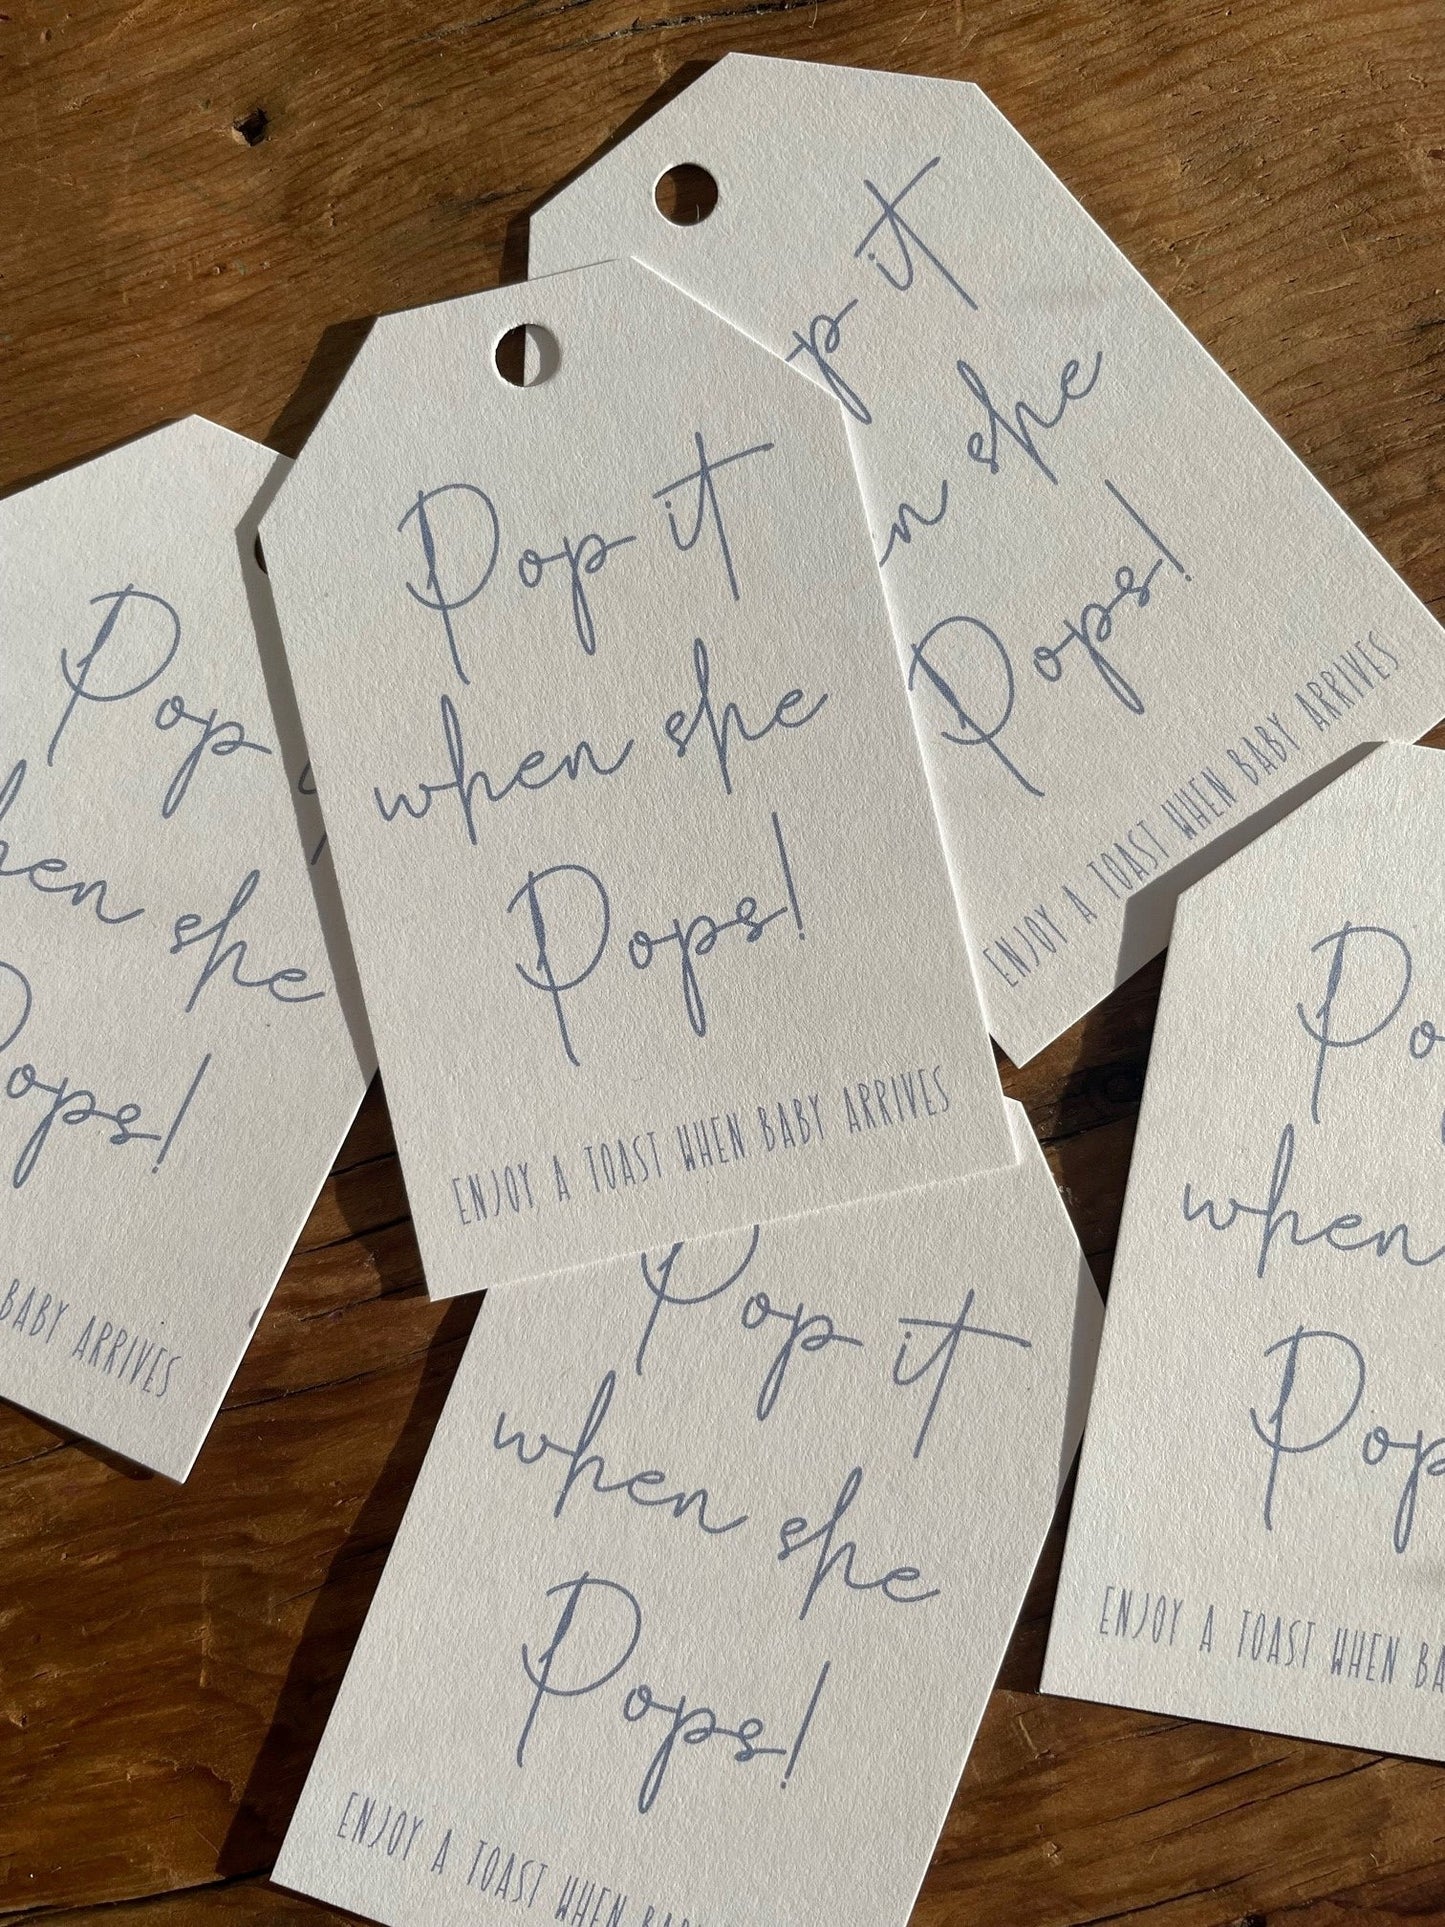 Pop it
when she
Pops!
ENJOY A TOAST WHEN BABY ARRIVES
it
she
Pops!
ENJOY A TOAST WHEN BABY ARRIVES
Pop
she
BABY ARRIVES
Pop it
when she
Pops!
ENJOY A TOAST WHEN
when
ENJOY A TOAST WHEN